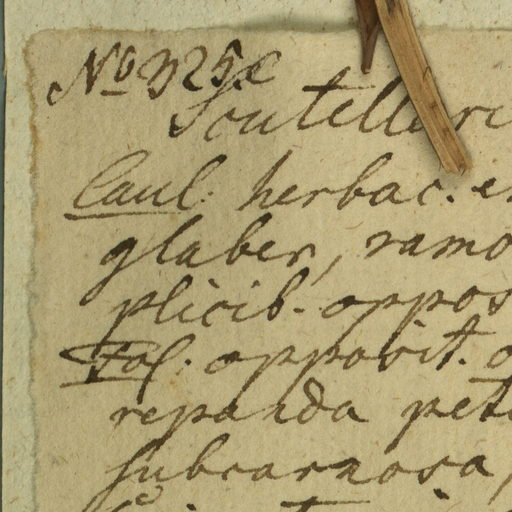 No 325.
Scutellari
Caul: herbac. e
glaber, ramo
plicib. oppos
Fol: opposit. o
repanda pet
subcarnosa,